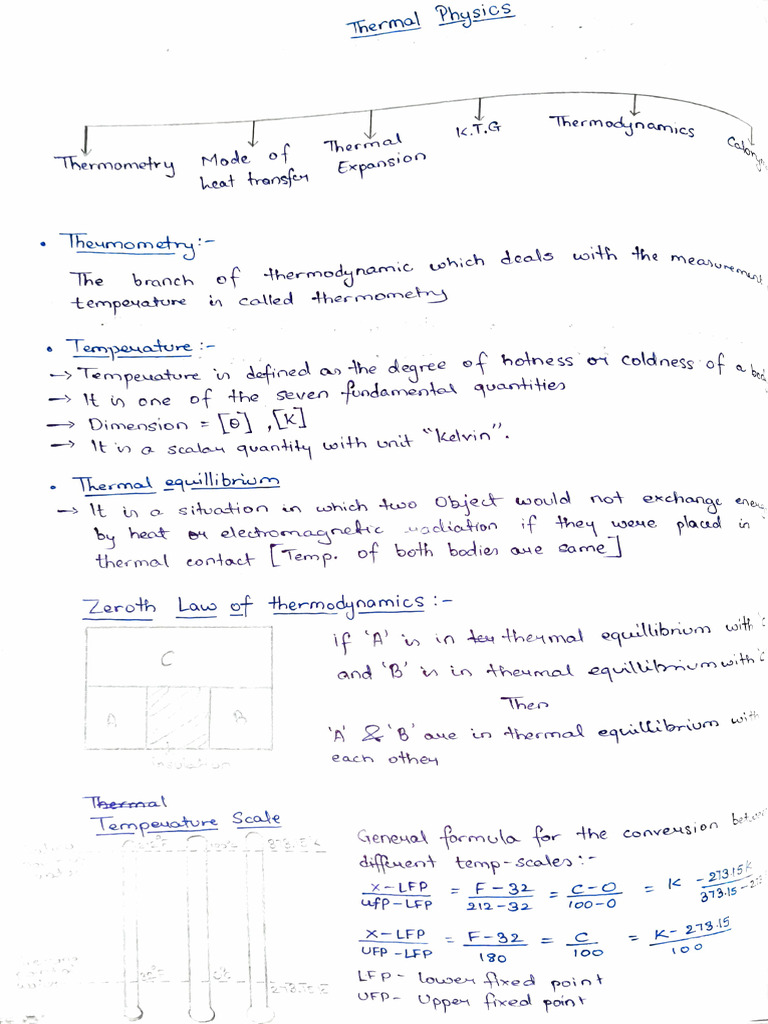 Thermal Physics
Thermometry
Mode of
heat transfer
Thermal
Expansion
K.T.G
Thermodynamics
• Thermometry:-
The branch of thermodynamic which deals with the measurement
temperature is called thermometry
• Temperature:-
→ Temperature is defined as the degree of hotness or coldness of a
→ It is one of the seven fundamental quantities
→ Dimension = [θ], [K]
→ It is a scalar quantity with unit "Kelvin".
• Thermal equillibrium
→ It is a situation in which two Object would not exchange
by heat or electromagnetic radiation if they were placed in
thermal contact [Temp. of both bodies are same]
Zeroth Law of thermodynamics:-
C
A
B
Insulation
if 'A' is in thermal equillibrium with
and 'B' is in thermal equillibrium with
Then
'A' & 'B' are in thermal equillibrium with
each other
Thermal
Temperature Scale
General formula for the conversion
different temp-scales:-
X-LFP/UFP-LFP = F-32/212-32 = C-0/100-0 = K -273.15K/373.15-
X-LFP/UFP-LFP = F-32/180 = C/100 = K-273.15/100
LFP- lower fixed point
UFP- Upper fixed point